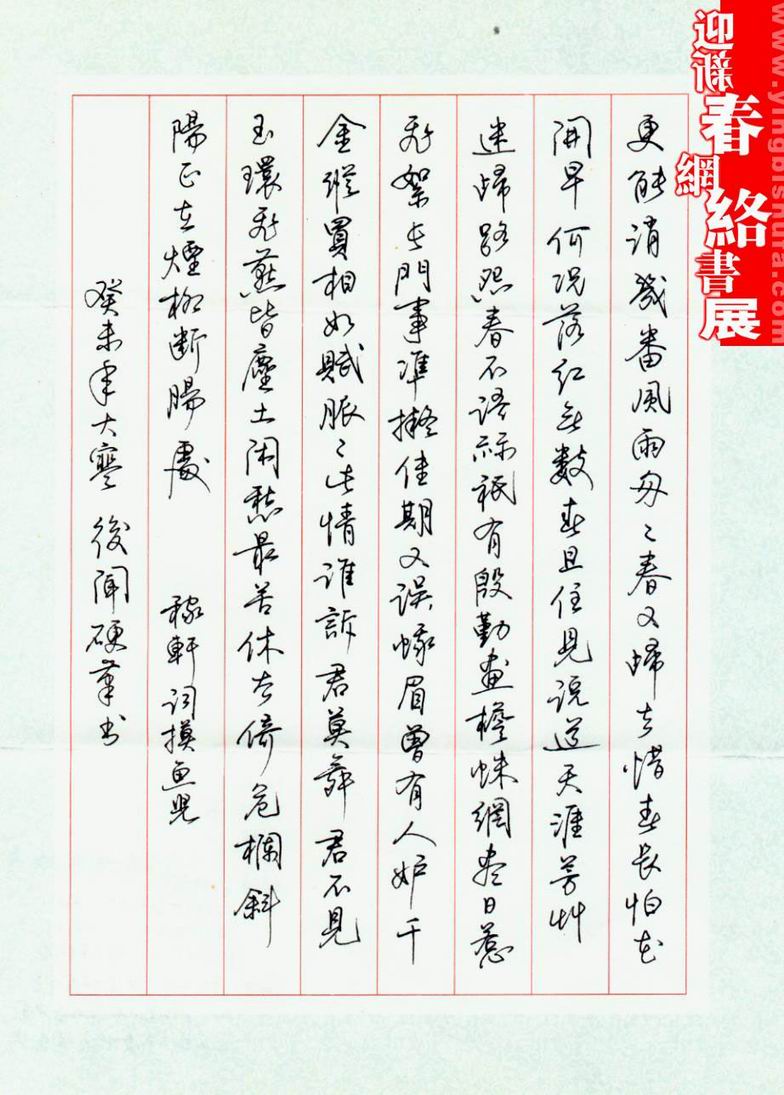 更能消幾番風雨匆〻春又歸去惜春長怕花
開早何況落紅無數春且住見說道天涯芳艸
迷歸路怨春不語祘祇有殷勤畫檐蛛網盡日惹
飛絮長門事準擬佳期又誤蛾眉曾有人妒千
金縱買相如賦脈〻此情誰訴君莫舞君不見
玉環飛燕皆塵土閑愁最苦休去倚危欄斜
陽正在煙柳斷腸處 稼軒詞摸魚兒
癸未年大寒後聞硬筆书
迎春網絡書展
www.yingbishufa.com